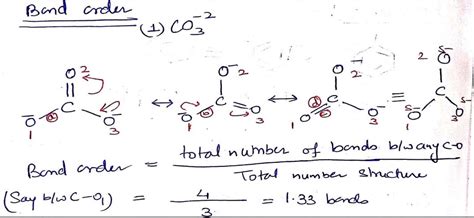 Bond order
(1) CO₃⁻²
O 2 O⁻ 2 O⁻ 2 2 O δ⁻
C ↔ C ↔ C ≡ C
O⁻ 1 O⁻ 3 O⁻ 1 O 3 O 1 O⁻ 3 O δ⁻ 1 O δ⁻ 3
Bond order = total number of bonds b/w any C-O
Total number structure
(Say b/w C-O₁) = 4/3 = 1.33 bonds